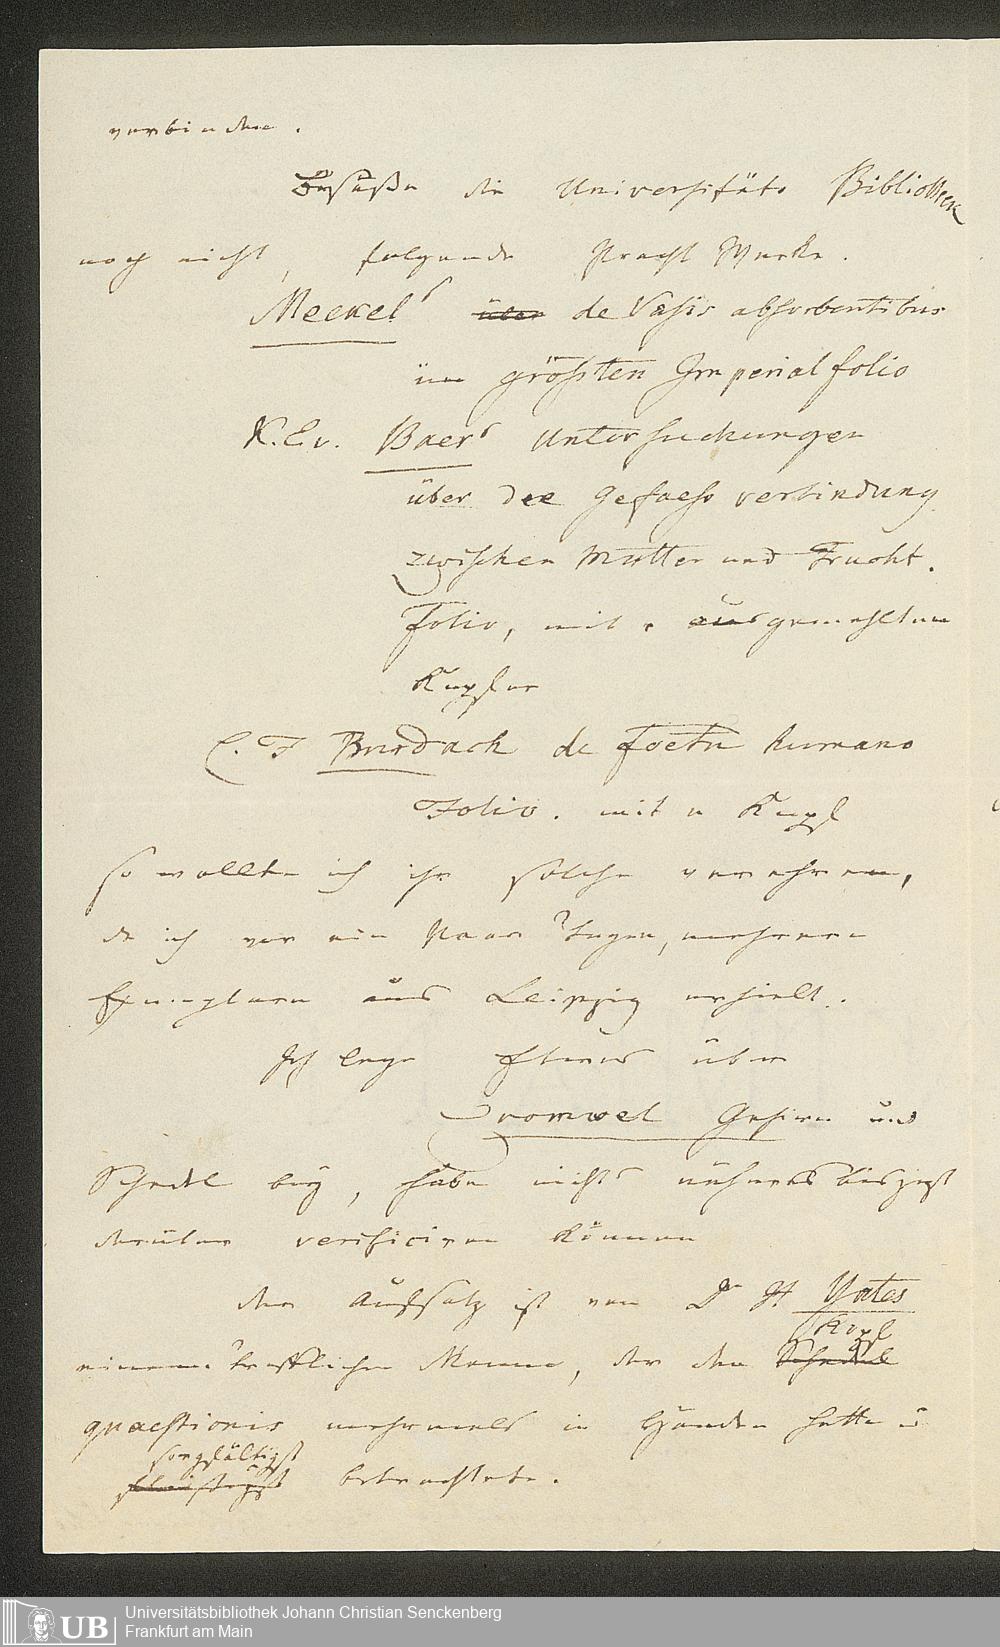 verbinden.
Besäße die Universitäts Bibliothek
noch nicht, folgende Pracht Werke.
Meckels über de Vasis absorbentibus
im größten Imperial folio
K. E. v. Baers Untersuchungen
über die Gefaess verbindung
zwischen Mutter und Frucht.
Folio, mit ausgemahlten
Kupfer
C. F Burdach de foetu humano
Folio. mit Kupf
so wollte ich ihr solche verehren,
da ich vor ein Paar Tagen, mehrere
Exemplare aus Leipzig erhielt.
Ich lege Etwas über
Cromwel Gehirn und
Schedel bey, habe nichts näheres bis jezt
darüber verificiren können
der Aufsatz ist von Dr H Yates
Kopf
einem trefflichen Manne, der den Schedel
quaestionis mehrmals in Händen hatte u
sorgfältigst
fleissigst betrachtete.
Universitätsbibliothek Johann Christian Senckenberg
UB Frankfurt am Main